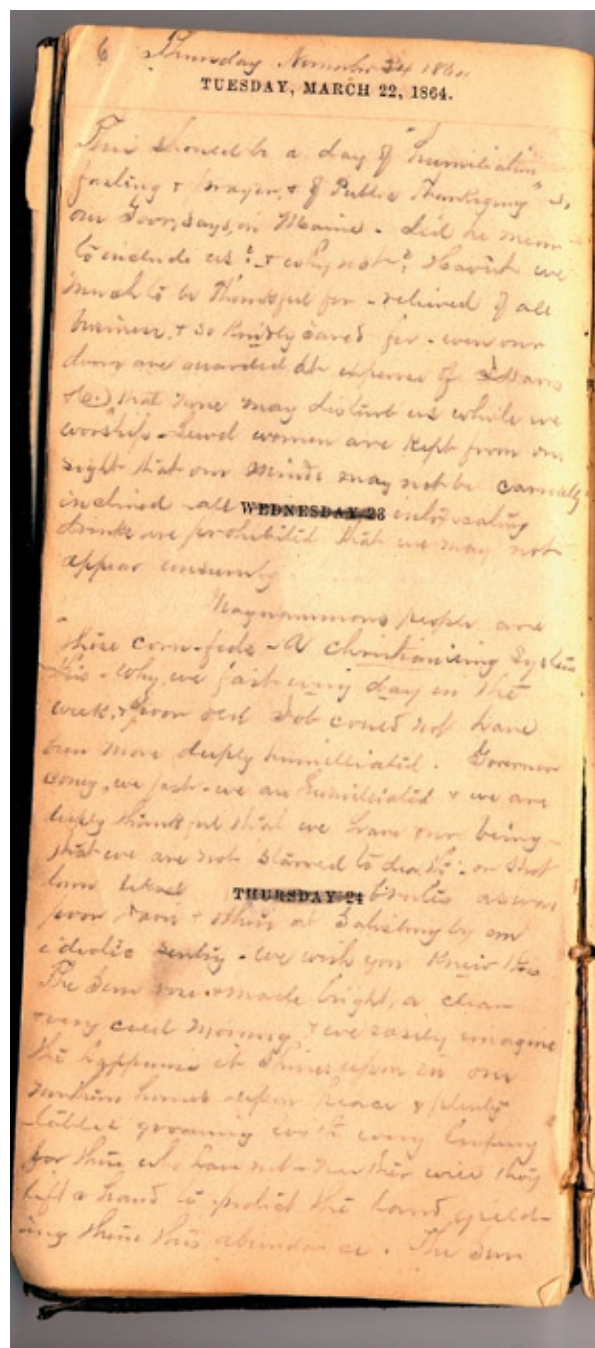 6 Thursday November 24 1864
TUESDAY, MARCH 22, 1864.
This should be a day of "humiliation
fasting & prayer, & of Public Thanksgiving" so,
our Gov, says, in Maine - did he mean
to include us? & why not? Haven't we
much to be thankful for - relieved of all
business, & so kindly cared for - even our
doors are guarded at expense of
that none may disturb us while we
worship - Lewd women are kept from our
sight that our minds may not be carnally
inclined - all WEDNESDAY 23 intoxicating
drinks are prohibited that we may not
appear unseemly.
Magnanimous people are
these corn-feds - A christianizing system
this - Why, we fast every day in the
week, & poor old Job could not have
been more deeply humiliated. Governor
Coney, we fast - we are humiliated & we are
deeply thankful that we have our being -
that we are not starved to death - or shot
down like THURSDAY 24 brutes as was
poor & others at Salisbury by an
idiotic sentry - we wish you knew this
The Sun rose & made bright, a clear
& very cold morning & we easily imagine
the happiness it shines upon in our
northern homes - upon peace & plenty
- tables groaning with every luxury
for those who have not - neither will they
lift a hand to protect the land yield-
ing them this abundance. The Sun